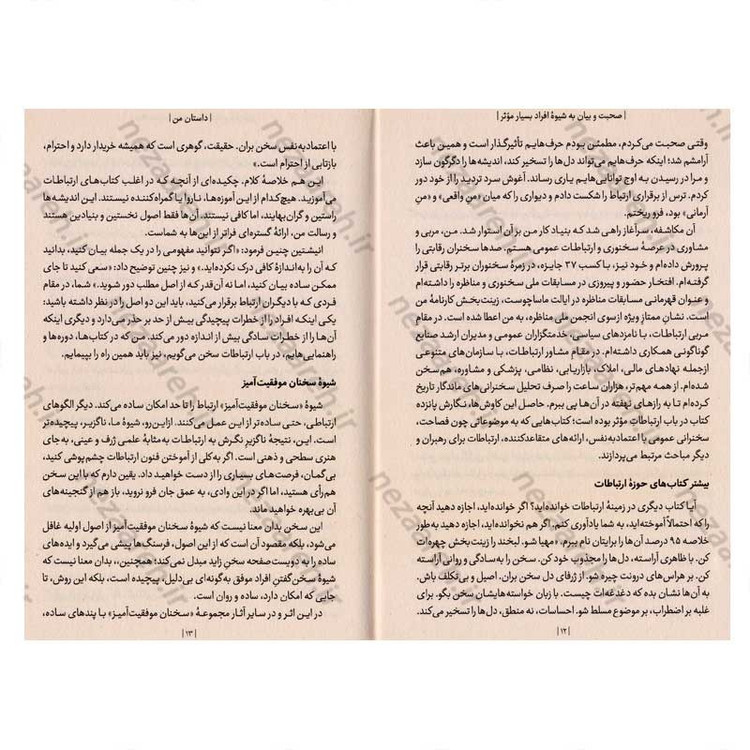 | صحبت و بیان به شیوهٔ افراد بسیار مؤثر |
وقتی صحبت می‌کردم، مطمئن بودم حرف‌هایم تأثیرگذار است و همین باعث
آرامشم شد؛ اینکه حرف‌هایم می‌تواند دل‌ها را تسخیر کند، اندیشه‌ها را دگرگون سازد
و مرا در رسیدن به اوج توانایی‌هایم یاری رساند. آغوش سرد تردید را از خود دور
کردم. ترس از برقراری ارتباط را شکست دادم و دیواری را که میان «من واقعی» و «من
آرمانی» بود، فرو ریختم.
آن مکاشفه، سرآغاز راهی شد که بنیاد کار من بر آن استوار شد. من، مربی و
مشاوری در عرصهٔ سخنوری و ارتباطات عمومی هستم. صدها سخنران رقابتی را
پرورش داده‌ام و خود نیز، با کسب ۳۷ جایزه، در زمرهٔ سخنوران برتر رقابتی قرار
گرفته‌ام. افتخار حضور و پیروزی در مسابقات ملی سخنوری و مناظره را داشته‌ام
و عنوان قهرمانی مسابقات مناظره در ایالت ماساچوست، زینت‌بخش کارنامهٔ من
است. نشان ممتاز ویژه از سوی انجمن ملی مناظره، به من اعطا شده است. در مقام
مربی ارتباطات، با نامزدهای سیاسی، خدمتگزاران عمومی و مدیران ارشد صنایع
گوناگونی همکاری داشته‌ام. در مقام مشاور ارتباطات، با سازمان‌های متنوعی
ازجمله نهادهای مالی، املاک، بازاریابی، نظامی، پزشکی و مشاوره، هم‌سخن
شده‌ام. از همه مهم‌تر، هزاران ساعت را صرف تحلیل سخنرانی‌های ماندگار تاریخ
کرده‌ام تا به رازهای نهفته در آن‌ها پی ببرم. حاصل این کاوش‌ها، نگارش پانزده
کتاب در باب ارتباطات مؤثر بوده است؛ کتاب‌هایی که به موضوعاتی چون فصاحت،
سخنرانی عمومی با اعتمادبه‌نفس، ارائه‌های متقاعدکننده، ارتباطات برای رهبران و
دیگر مباحث مرتبط می‌پردازند.
بیشتر کتاب‌های حوزهٔ ارتباطات
آیا کتاب دیگری در زمینهٔ ارتباطات خوانده‌اید؟ اگر خوانده‌اید، اجازه دهید آنچه
را که احتمالاً آموخته‌اید، به شما یادآوری کنم. اگر هم نخوانده‌اید، اجازه دهید به‌طور
خلاصه ۹۵ درصد آن‌ها را برایتان نام ببرم. «مهیا شو. لبخند را زینت‌بخش چهره‌ات
کن. با ظاهری آراسته، دل‌ها را مجذوب خود کن. سخن را به‌سادگی و روانی آراسته
کن. بر هراس‌های درونت چیره شو. از ژرفای دل سخن بران. اصیل و بی‌تکلف باش.
به آن‌ها نشان بده که دغدغه‌ات چیست. با زبان خواسته‌هایشان سخن بگو. برای
غلبه بر اضطراب، بر موضوع مسلط شو. احساسات، نه منطق، دل‌ها را تسخیر می‌کند.
| ۱۲ |
| داستان من |
با اعتمادبه‌نفس سخن بران. حقیقت، گوهری است که همیشه خریدار دارد و احترام،
بازتابی از احترام است.»
این هم خلاصهٔ کلام. چکیده‌ای از آنچه که در اغلب کتاب‌های ارتباطات
می‌آموزید. هیچ‌کدام از این آموزه‌ها، ناروا یا گمراه‌کننده نیستند. این اندیشه‌ها
راستین و گران‌بهایند، اما کافی نیستند. آن‌ها فقط اصول نخستین و بنیادین هستند
و رسالت من، ارائهٔ گستره‌ای فراتر از این‌ها به شماست.
انیشتین چنین فرمود: «اگر نتوانید مفهومی را در یک جمله بیان کنید، بدانید
که آن را به‌اندازهٔ کافی درک نکرده‌اید.» و نیز چنین توضیح داد: «سعی کنید تا جای
ممکن ساده بیان کنید، اما نه آن‌قدر که از اصل مطلب دور شوید.» شما، در مقام
فردی که با دیگران ارتباط برقرار می‌کنید، باید این دو اصل را در نظر داشته باشید:
یکی اینکه افراد را از خطرات پیچیدگی بیش از حد بر حذر می‌دارد و دیگری اینکه
آن‌ها را از خطرات سادگی بیش از اندازه دور می‌کند. من که در کتاب‌ها، دوره‌ها و
راهنمایی‌هایم، در باب ارتباطات سخن می‌گویم، نیز باید همین راه را بپیمایم.
شیوهٔ سخنان موفقیت‌آمیز
شیوهٔ «سخنان موفقیت‌آمیز» ارتباط را تا حد امکان ساده می‌کند. دیگر الگوهای
ارتباطی، حتی ساده‌تر از این عمل می‌کنند. ازاین‌رو، شیوهٔ ما، ناگزیر، پیچیده‌تر
است. این، نتیجهٔ ناگزیر نگرش به ارتباطات به‌مثابهٔ علمی ژرف و عینی، به‌جای
هنری سطحی و ذهنی است. اگر به‌کلی از آموختن فنون ارتباطات چشم‌پوشی کنید،
بی‌گمان، فرصت‌های بسیاری را از دست خواهید داد. یقین دارم که با این سخن
هم‌رأی هستید، اما اگر در این وادی، به عمق جان فرو نروید، باز هم از گنجینه‌های
آن بی‌بهره خواهید ماند.
این سخن بدان معنا نیست که شیوهٔ سخنان موفقیت‌آمیز از اصول اولیه غافل
می‌شود، بلکه مقصود آن است که از این اصول، فرسنگ‌ها پیشی می‌گیرد و ایده‌های
ساده را به دویست‌صفحه سخنِ زاید مبدل نمی‌کند؛ همچنین، بدان معنا نیست که
شیوهٔ سخن‌گفتن افراد موفق به‌گونه‌ای بی‌دلیل، پیچیده است، بلکه این روش، تا
جایی که امکان دارد، ساده و روان است.
در این اثر و در سایر آثار مجموعهٔ «سخنان موفقیت‌آمیز» با پندهای ساده،
| ۱۳ |
nezaareh.ir